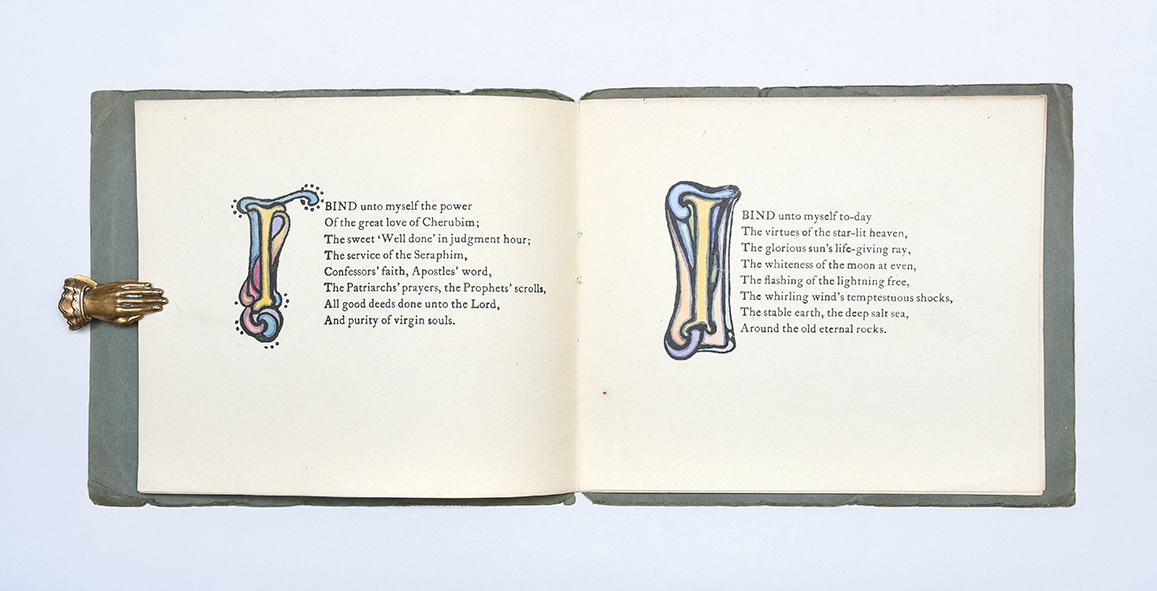 I BIND unto myself the power
Of the great love of Cherubim;
The sweet ‘Well done’ in judgment hour;
The service of the Seraphim,
Confessors’ faith, Apostles’ word,
The Patriarchs’ prayers, the Prophets’ scrolls,
All good deeds done unto the Lord,
And purity of virgin souls.
I BIND unto myself to-day
The virtues of the star-lit heaven,
The glorious sun’s life-giving ray,
The whiteness of the moon at even,
The flashing of the lightning free,
The whirling wind’s temptestuous shocks,
The stable earth, the deep salt sea,
Around the old eternal rocks.